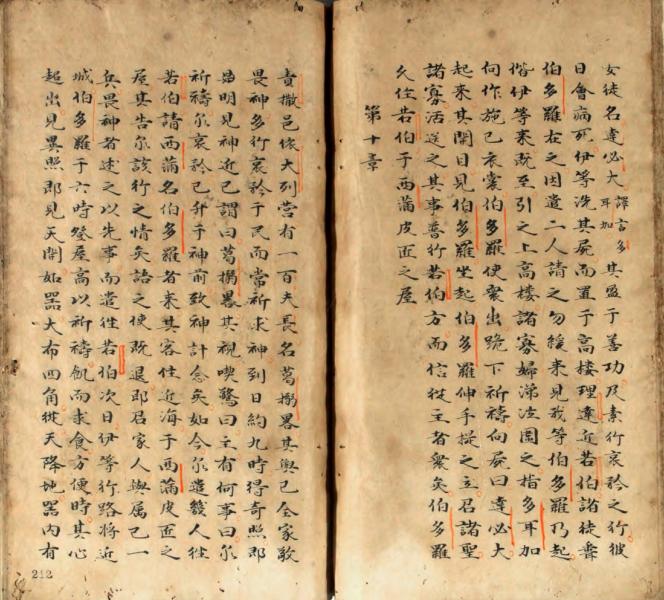 女徒名達必大譯言多耳加其盈于善功及素行哀矜之行彼
日會病死伊等洗其屍而置于高樓理達近若伯諸徒聞
伯多羅在之因遣二人請之勿緩來見我等伯多羅乃起
偕伊等來既至引之上高樓諸寡婦涕泣圍之指多耳加
向作施己衣裳伯多羅使眾出跪下祈禱向屍曰達必大
起來其開目見伯多羅坐起伯多羅伸手提之立召諸聖
諸寡活送之其事普行若伯方而信從主者衆矣伯多羅
久住若伯于西滿皮匠之屋
第十章
責撒邑依大列營有一百夫長名葛搦畧其與己全家敬
畏神多行哀矜于民而當祈求神到日約九時得奇照郎
始明見神近己謂曰葛搦畧其視喫驚曰主有何事曰尔
祈禱尔哀矜已升于神前致神計念矣如今尔遣幾人往
若伯請西滿名伯多羅者來其客住近海于西滿皮匠之
屋其告尔該行之情矣語之使既退即召家人與屬己一
兵畏神者述之以先事而遣徃若伯次日伊等行路將近
城伯多羅于六時登屋高以祈禱飢而求食方便時其心
超出見異照郎見天開如器大布四角從天降地器内有
212